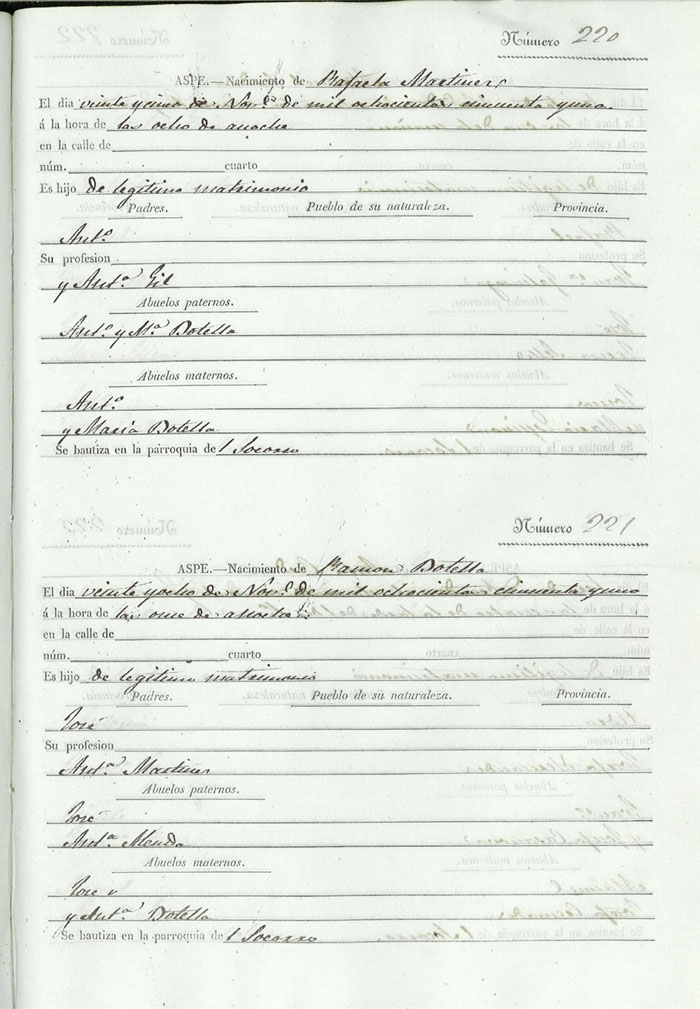 Número 220
ASPE.—Nacimiento de Rafaela Martinez
El dia veinte y cinco de Nov.e de mil ochocientos cincuenta y uno
á la hora de las ocho de anoche
en la calle de
núm. cuarto
Es hijo de legitimo matrimonio
Padres. Pueblo de su naturaleza. Provincia.
Ant.o
Su profesion
y Ant.a Gil
Abuelos paternos.
Ant.o y M.a Botella
Abuelos maternos.
Ant.o
y Maria Botella
Se bautiza en la parroquia del Socorro
Número 221
ASPE.—Nacimiento de Ramon Botella
El dia veinte y ocho de Nov.e de mil ochocientos cincuenta y uno
á la hora de las once de anoche
en la calle de
núm. cuarto
Es hijo de legitimo matrimonio
Padres. Pueblo de su naturaleza. Provincia.
José
Su profesion
Ant.a Martinez
Abuelos paternos.
José
Ant.a
Abuelos maternos.
Jose
y Ant.a Botella
Se bautiza en la parroquia del Socorro